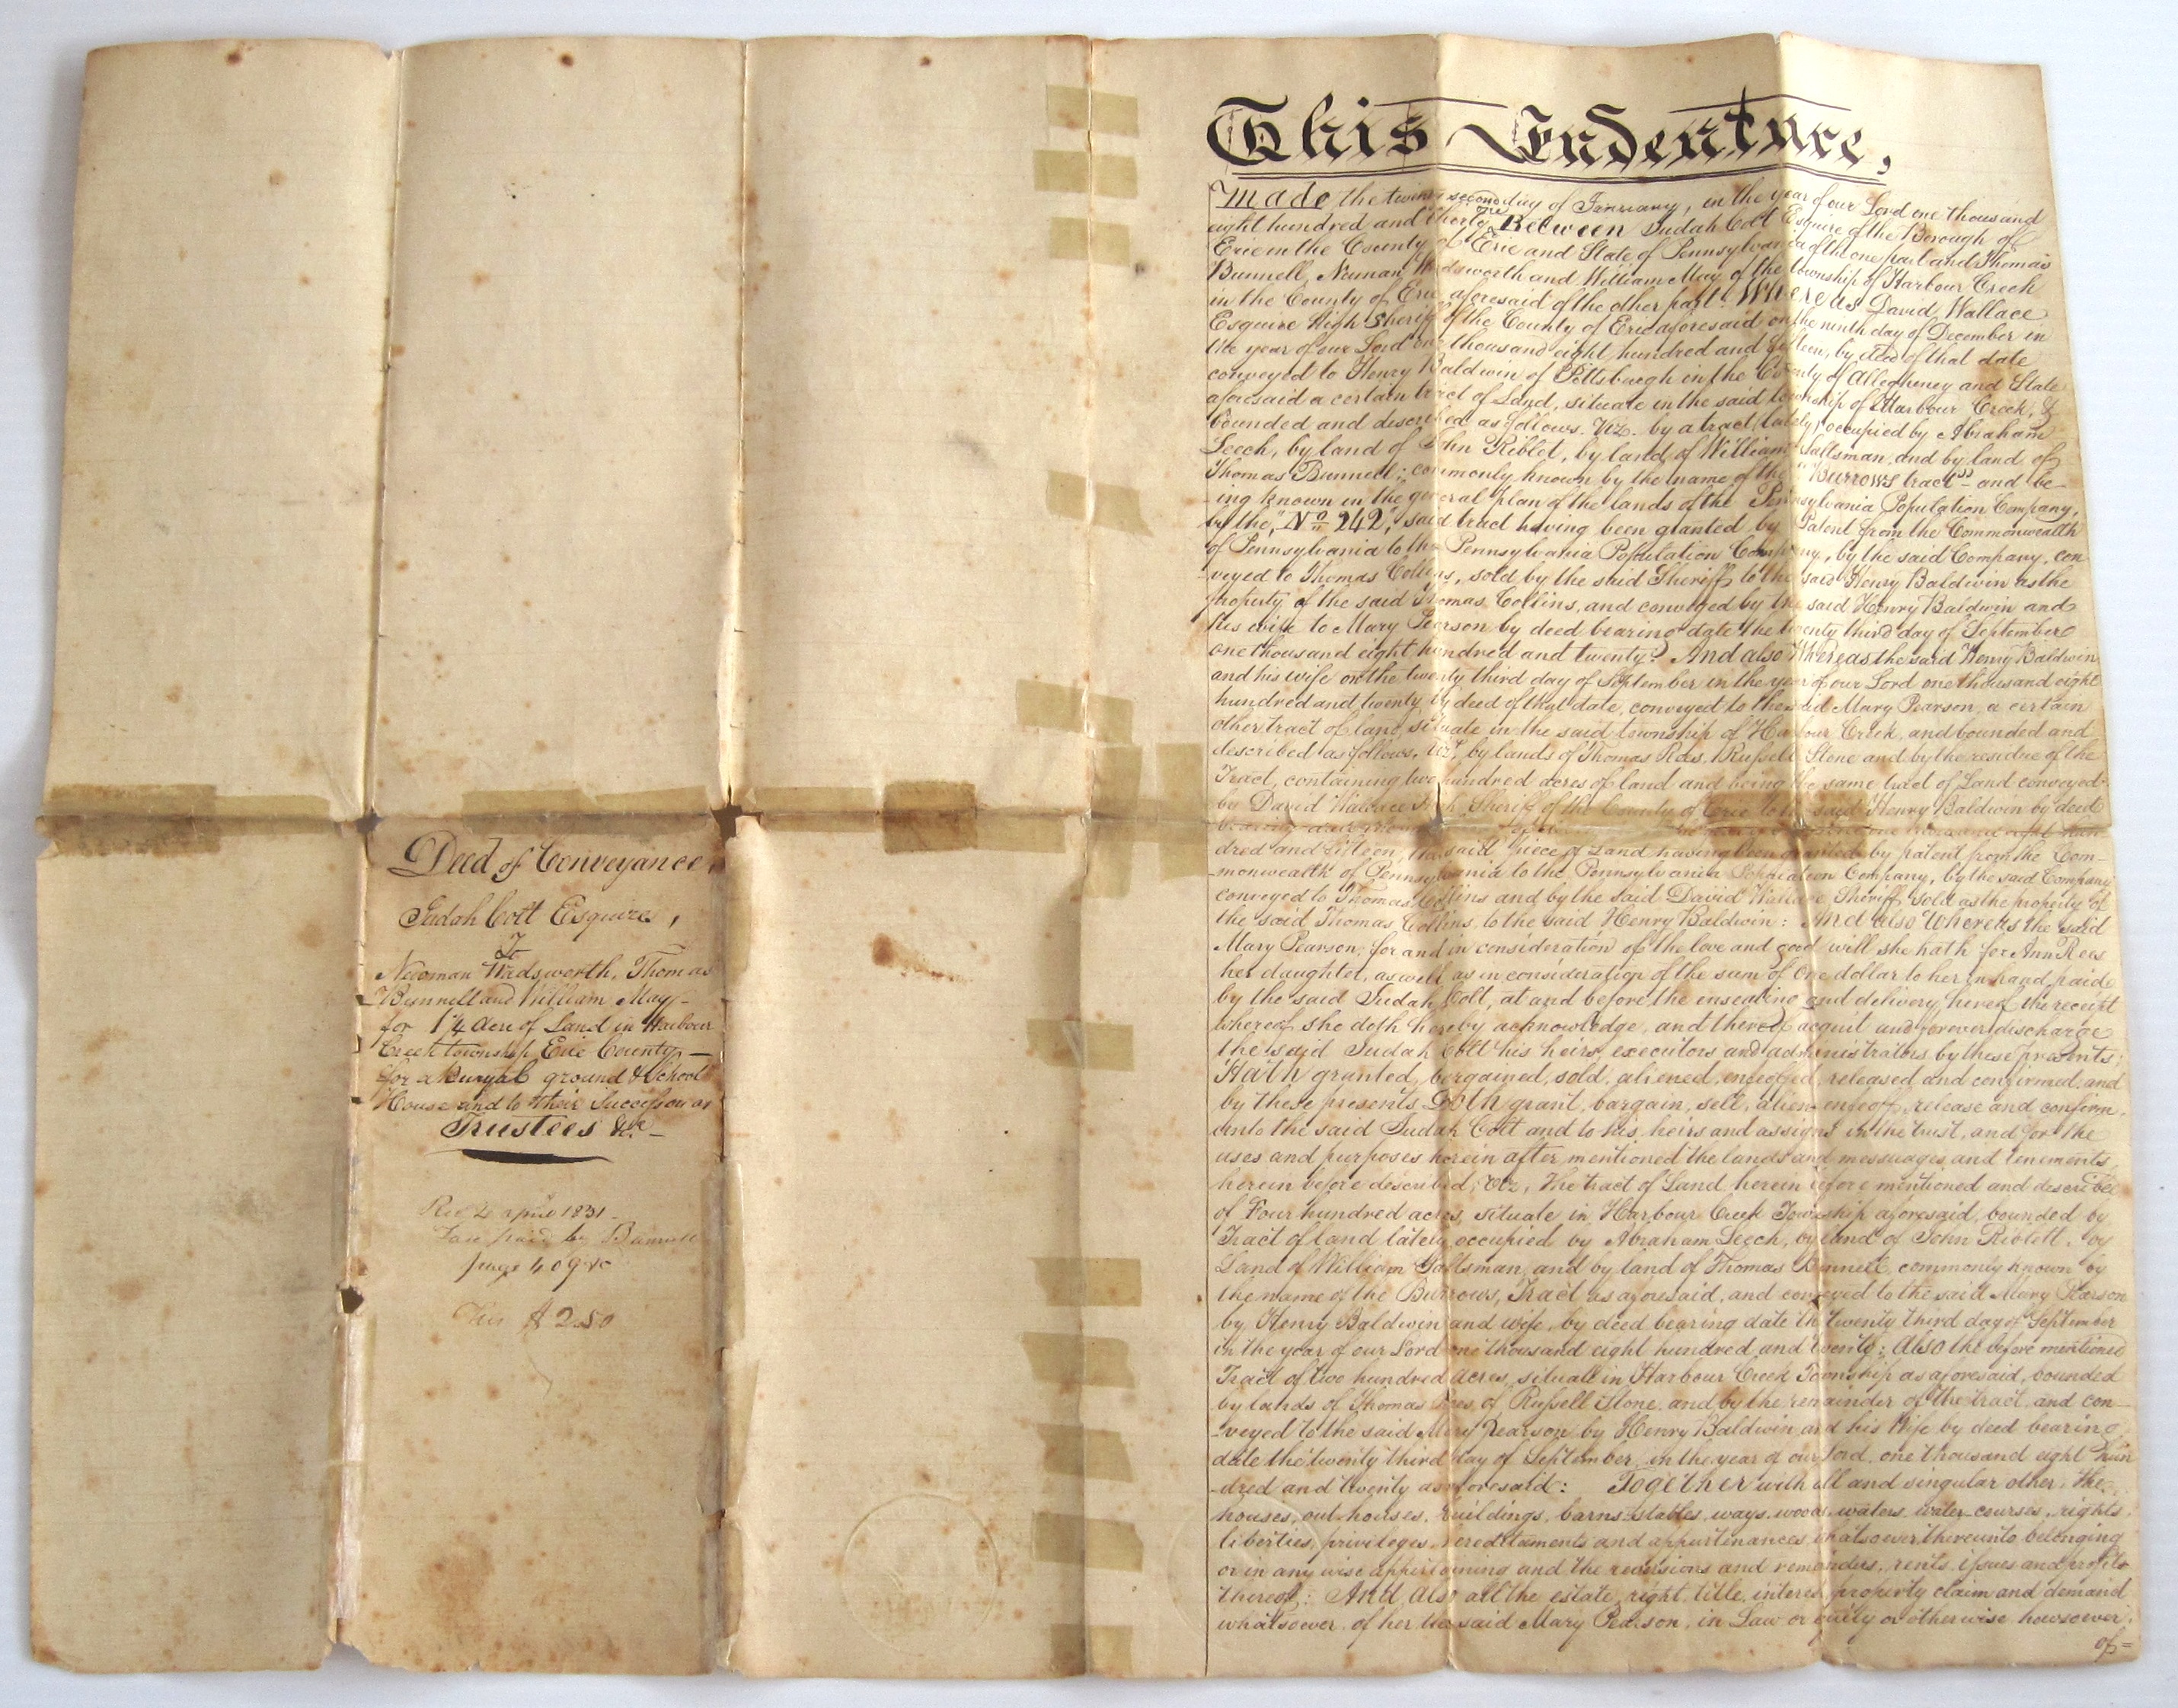 Deed of Conveyance,
Judah Colt Esquire,
To
Newman Wadsworth, Thomas
Bunnell and William May -
for 1¼ Acre of Land in Harbour
Creek township Erie County —
for a Buryal ground & School
House and to their Successors as
Trustees &c —
Rec 2 april 1831
paid by Bunnell
page 409 &c
$2.50
This Indenture,
Made the twenty second day of January, in the year of our Lord one thousand
eight hundred and thirty one Between Judah Colt Esquire of the Borough of
Erie in the County of Erie and State of Pennsylvania of the one part and Thomas
Bunnell, Numan Wadsworth and William May of the township of Harbour Creek
in the County of Erie aforesaid of the other part: Whereas David Wallace
Esquire High Sheriff of the County of Erie aforesaid on the ninth day of December in
the year of our Lord one thousand eight hundred and fifteen, by deed of that date
conveyed to Henry Baldwin of Pittsburgh in the County of Allegheney and State
aforesaid a certain tract of Land, situate in the said township of Harbour Creek, &
bounded and described as follows. Viz. by a tract lately occupied by Abraham
Leech, by land of John Riblet, by land of William Saltsman, and by land of
Thomas Bunnell; commonly known by the name of the "Burrows tract" - and be-
-ing known in the general plan of the lands of the Pennsylvania Population Company,
by the, "No 242", said tract having been granted by Patent from the Commonwealth
of Pennsylvania to the Pennsylvania Population Company, by the said Company, con
-veyed to Thomas Collins, sold by the said Sheriff to the said Henry Baldwin as the
property of the said Thomas Collins, and conveyed by the said Henry Baldwin and
his wife to Mary Pearson by deed bearing date the twenty third day of September
one thousand eight hundred and twenty? And also Whereas the said Henry Baldwin
and his wife on the twenty third day of September in the year of our Lord one thousand eight
hundred and twenty by deed of that date, conveyed to the said Mary Pearson, a certain
other tract of land, situate in the said township of Harbour Creek, and bounded and
described as follows, Viz, by lands of Thomas Rees, Russell Stone and by the residue of the
Tract, containing two hundred acres of land and being the same tract of Land conveyed
by David Wallace High Sheriff of the County of Erie to the said Henry Baldwin by deed
bearing date one thousand eight hun
dred and fifteen, the said piece of Land having been granted by patent from the Com-
-monwealth of Pennsylvania to the Pennsylvania Population Company, by the said Company
conveyed to Thomas Collins and by the said David Wallace Sheriff sold as the property of
the said Thomas Collins, to the said Henry Baldwin: And also Whereas the said
Mary Pearson, for and in consideration of the love and good will she hath for Ann Rees
her daughter, as well as in consideration of the sum of One dollar to her in hand paid
by the said Judah Colt, at and before the ensealing and delivery hereof the receipt
whereof she doth hereby acknowledge, and thereof acquit and forever discharge
the said Judah Colt his heirs, executors and administrators by these presents;
Hath granted, bargained, sold, aliened, enfeoffed, released and confirmed, and
by these presents Doth grant, bargain, sell, alien enfeoff, release and confirm
unto the said Judah Colt and to his heirs and assigns in the trust, and for the
uses and purposes herein after mentioned the lands and messuages and tenements
herein before described; Viz, The tract of Land herein before mentioned and described
of Four hundred acres, situate in Harbour Creek Township aforesaid, bounded by
Tract of land lately occupied by Abraham Leech, by land of John Riblett, by
Land of William Saltsman, and by land of Thomas Bunnell commonly known by
the name of the Burrows, Tract as aforesaid, and conveyed to the said Mary Pearson
by Henry Baldwin and wife, by deed bearing date the twenty third day of September
in the year of our Lord one thousand eight hundred and twenty: Also the before mentioned
Tract of two hundred acres, situate in Harbour Creek Township as aforesaid, bounded
by lands of Thomas Rees, of Russell Stone, and by the remainder of the tract, and con-
-veyed to the said Mary Pearson by Henry Baldwin and his Wife by deed bearing
date the twenty third day of September, in the year of our Lord, one thousand eight hun
-dred and twenty as aforesaid: Together with all and singular other, the
houses, out houses, buildings, barns stables, ways, woods, waters, water-courses, rights,
liberties, privileges, hereditaments and appurtenances whatsoever thereunto belonging
or in any wise appertaining and the reversions and remainders, rents, issues and profits
thereof: And also all the estate, right, title, interest, property claim and demand
whatsoever, of her the said Mary Pearson, in Law or equity or otherwise howsoever,
of=